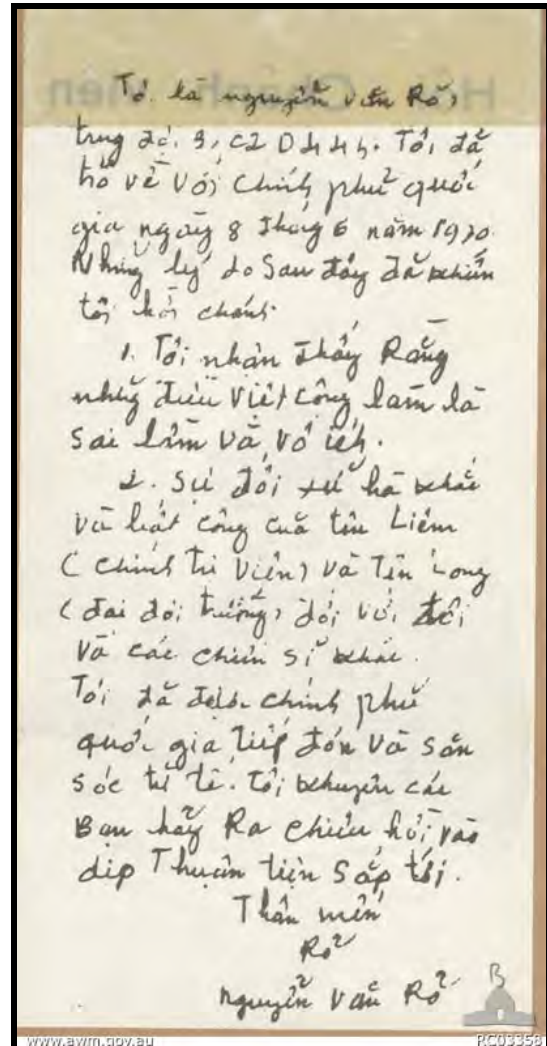 Tôi là nguyễn văn Rỡ,
trung đội 3, C2 D445. Tôi đã
hồ về với chính phủ quốc
gia ngày 8 tháng 6 năm 1970.
Những lý do sau đây đã khiến
tôi hồi chánh.
1. Tôi nhận thấy Rằng
những điều việt cộng làm là
sai lầm và vô ích.
2. Sự đối xử hà khắc
và bất công của tên Liêm
(chính trị viên) và Tên Long
(đại đội trưởng) đối với tôi
và các chiến sĩ khác.
Tôi đã được chính phủ
quốc gia tiếp đón và săn
sóc tử tế. Tôi khuyên các
Bạn hãy Ra chiêu hồi vào
dịp Thuận tiện sắp tới.
Thân mến
Rỡ
nguyễn văn Rỡ
B
www.awm.gov.au RC03358